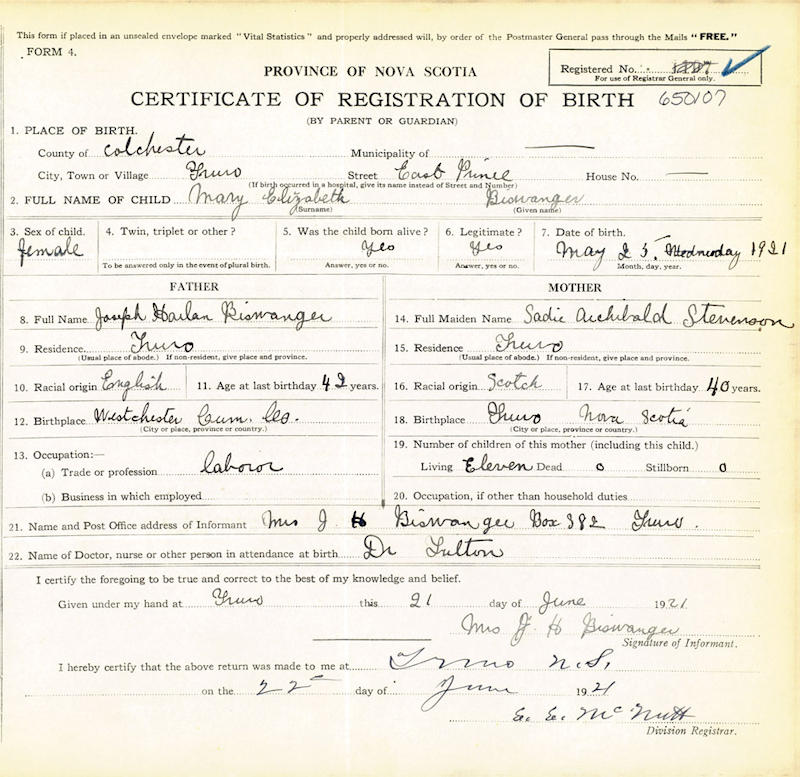 This form if placed in an unsealed envelope marked "Vital Statistics" and properly addressed will, by order of the Postmaster General pass through the Mails "FREE."
FORM 4.
PROVINCE OF NOVA SCOTIA
Registered No.
For use of Registrar General only.
CERTIFICATE OF REGISTRATION OF BIRTH 650107
(BY PARENT OR GUARDIAN)
1. PLACE OF BIRTH.
County of Colchester Municipality of
City, Town or Village Truro Street East Prince House No.
(If birth occurred in a hospital, give its name instead of Street and Number)
2. FULL NAME OF CHILD Mary Elizabeth Biswanger
(Surname) (Given name)
3. Sex of child. 4. Twin, triplet or other? 5. Was the child born alive? 6. Legitimate? 7. Date of birth.
female Yes Yes May 25, Wednesday 1921
To be answered only in the event of plural birth. Answer, yes or no. Answer, yes or no. Month, day, year.
FATHER MOTHER
8. Full Name Joseph Harlan Biswanger 14. Full Maiden Name Sadie Archibald Stevenson
9. Residence Truro 15. Residence Truro
(Usual place of abode.) If non-resident, give place and province. (Usual place of abode.) If non-resident, give place and province.
10. Racial origin English 11. Age at last birthday 42 years. 16. Racial origin Scotch 17. Age at last birthday 40 years.
12. Birthplace Westchester Cum. Co. 18. Birthplace Truro Nova Scotia
(City or place, province or country.) (City or place, province or country.)
13. Occupation:— 19. Number of children of this mother (including this child.)
(a) Trade or profession laboror Living Eleven Dead 0 Stillborn 0
(b) Business in which employed 20. Occupation, if other than household duties
21. Name and Post Office address of Informant Mrs J H Biswanger Box 382 Truro.
22. Name of Doctor, nurse or other person in attendance at birth Dr Fulton
I certify the foregoing to be true and correct to the best of my knowledge and belief.
Given under my hand at Truro this 21 day of June 1921
Mrs J H Biswanger
Signature of Informant.
I hereby certify that the above return was made to me at Truro N.S.
on the 22 day of June 1921
E. E. McNutt
Division Registrar.